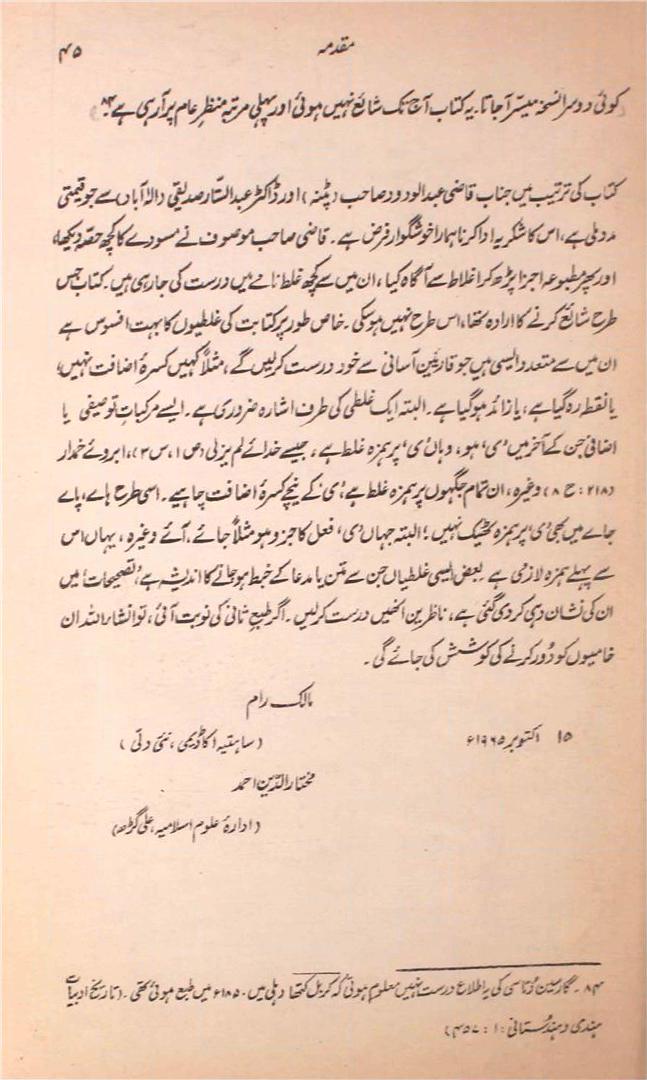 مقدمہ ۴۵
کوئی دوسرا نسخہ میسّر آجاتا۔ یہ کتاب آج تک شائع نہیں ہوئی اور پہلی مرتبہ منظرِ عام پر آرہی ہے۸۴۔
کتاب کی ترتیب میں جناب قاضی عبدالودود صاحب (پٹنہ) اور ڈاکٹر عبدالستّار صدیقی (الٰہ آباد) سے جو قیمتی
مدد ملی ہے، اس کا شکریہ ادا کرنا ہمارا خوشگوار فرض ہے۔ قاضی صاحب موصوف نے مسودے کا کچھ حصّہ دیکھا،
اور پھر مطبوعہ اجزا پڑھ کر اغلاط سے آگاہ کیا، ان میں سے کچھ غلط نامے میں درست کی جارہی ہیں۔ کتاب جس
طرح شائع کرنے کا ارادہ تھا، اس طرح نہیں ہوسکی۔ خاص طور پر کتابت کی غلطیوں کا بہت افسوس ہے
ان میں سے متعدد ایسی ہیں جو قارئین آسانی سے خود درست کرلیں گے، مثلاً کہیں کسرۂ اضافت نہیں،
یا نقطہ رہ گیا ہے، یا زائد ہوگیا ہے۔ البتہ ایک غلطی کی طرف اشارہ ضروری ہے۔ ایسے مرکباتِ توصیفی یا
اضافی جن کے آخر میں 'ی' ہو، وہاں 'ی' پر ہمزہ غلط ہے، جیسے خدائے لم یزلی (ص ۱، س ۳)، ابروئے خمدار
(۲۱۸: ح ۸) وغیرہ، ان تمام جگہوں پر ہمزہ غلط ہے، 'ی' کے نیچے کسرۂ اضافت چاہیے۔ اسی طرح ہاے، پاے
جاے میں بھی 'ی' پر ہمزہ ٹھیک نہیں؛ البتہ جہاں 'ی' فعل کا جزو ہو مثلاً جائے، آئے وغیرہ، یہاں اس
سے پہلے ہمزہ لازمی ہے۔ بعض ایسی غلطیاں جن سے متن یا مدعا کے خبط ہوجانے کا اندیشہ ہے، 'تصحیحات' میں
ان کی نشان دہی کردی گئی ہے، ناظرین انھیں درست کرلیں۔ اگر طبعِ ثانی کی نوبت آئی، تو انشاء اللہ ان
خامیوں کو دُور کرنے کی کوشش کی جائے گی۔
مالک رام
۱۵ اکتوبر ۱۹۶۵ء (ساہتیہ اکاڈیمی، نئی دلّی)
مختار الدّین احمد
(ادارۂ علومِ اسلامیہ، علی گڑھ)
۸۴۔ گارسیں دُتاسی کی یہ اطلاع درست نہیں معلوم ہوتی کہ کربل کتھا دہلی میں ۱۸۵۰ء میں طبع ہوئی تھی۔ (تاریخ ادبیات
ہندی و ہندُستانی: ۱: ۴۵۷)